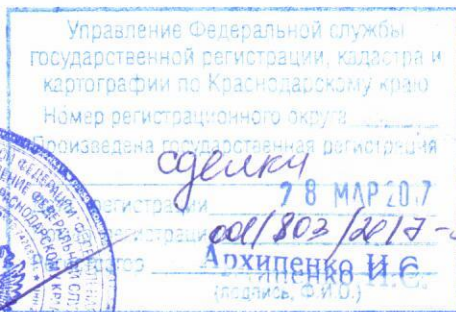 Управление Федеральной службы
государственной регистрации, кадастра и
картографии по Краснодарскому краю
Номер регистрационного округа
Произведена государственная регистрация
сделки
регистрации 28 МАР 2017
/803/2017-
Архипенко И.С.
(подпись, Ф.И.О.)